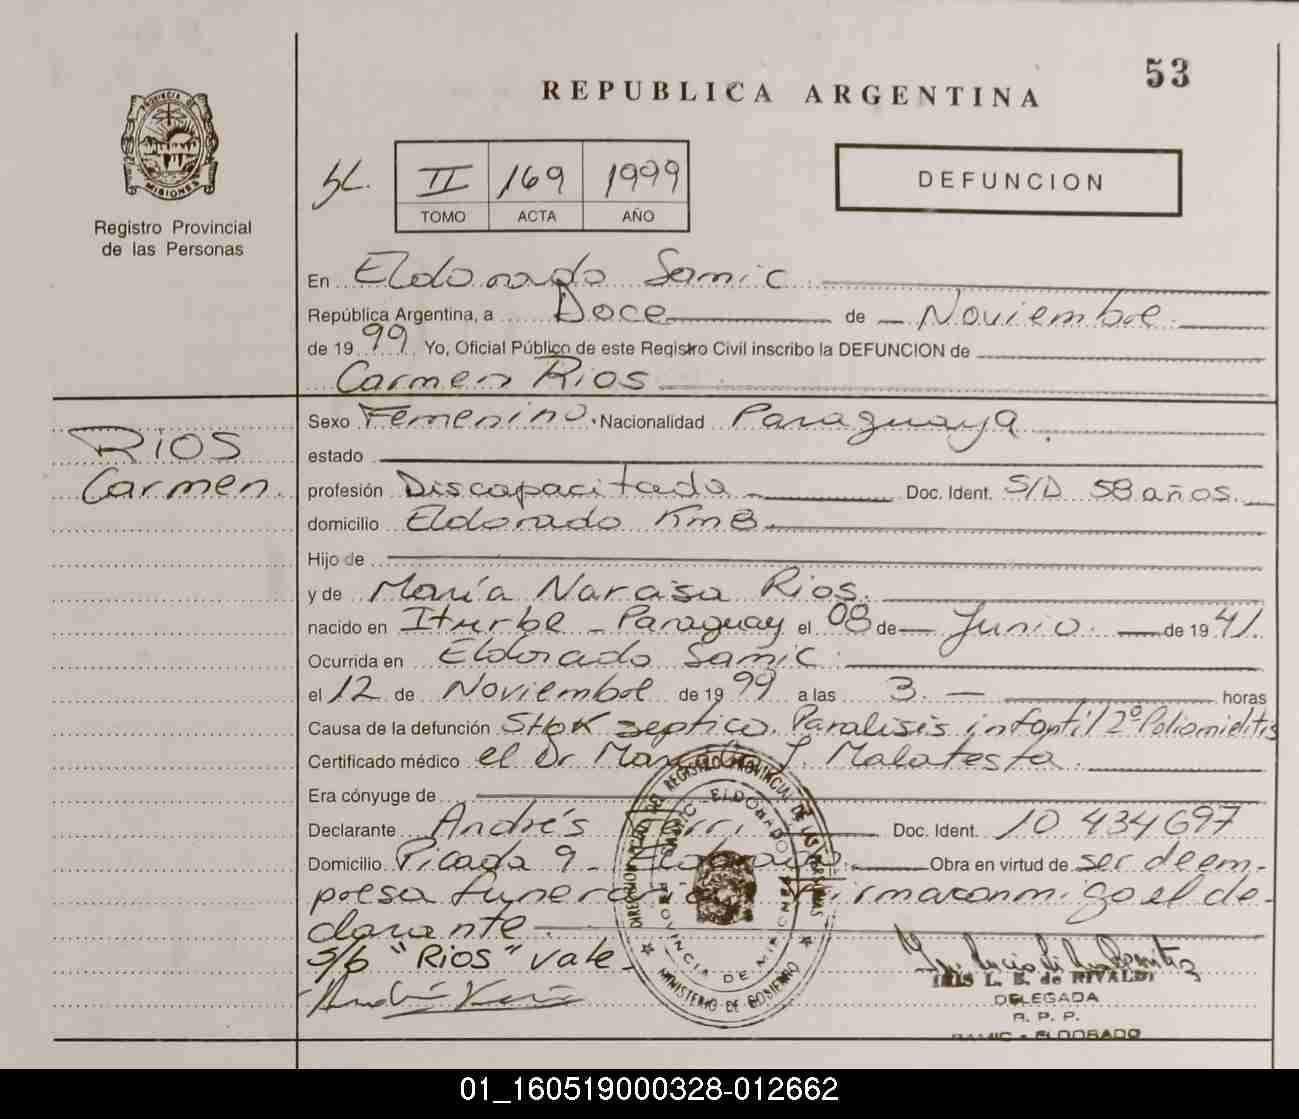 53
REPUBLICA ARGENTINA
PROVINCIA DE
MISIONES
Registro Provincial
de las Personas
II 169 1999
TOMO ACTA AÑO
DEFUNCION
En Eldorado Samic
República Argentina, a Doce de Noviembre
de 1999 Yo, Oficial Público de este Registro Civil inscribo la DEFUNCION de
Carmen Rios
RIOS
Carmen
Sexo Femenino. Nacionalidad Paraguaya
estado
profesión Discapacitada Doc. Ident. S/D 58 años.
domicilio Eldorado Km 8
Hijo de
y de María Narcisa Rios.
nacido en Iturbe - Paraguay el 08 de Junio de 1941.
Ocurrida en Eldorado Samic
el 12 de Noviembre de 1999 a las 3. horas
Causa de la defunción SHoK septico. Paralisis infantil 2º Poliomielitis
Certificado médico el Dr J. Malatesta
Era cónyuge de
Declarante Andrés Doc. Ident. 10 434697
Domicilio Picada 9 - Eldorado. Obra en virtud de ser de em-
presa funeraria. Firma conmigo el de-
clarante
S/b "Rios" vale.
IRIS L. B. de RIVALDI
DELEGADA
R. P. P.
SAMIC - ELDORADO
DIRECCION GRAL DEL REGISTRO PROVINCIAL DE LAS PERSONAS
MINISTERIO DE GOBIERNO
SAMIC - ELDORADO
PROVINCIA DE MISIONES
01_160519000328-012662